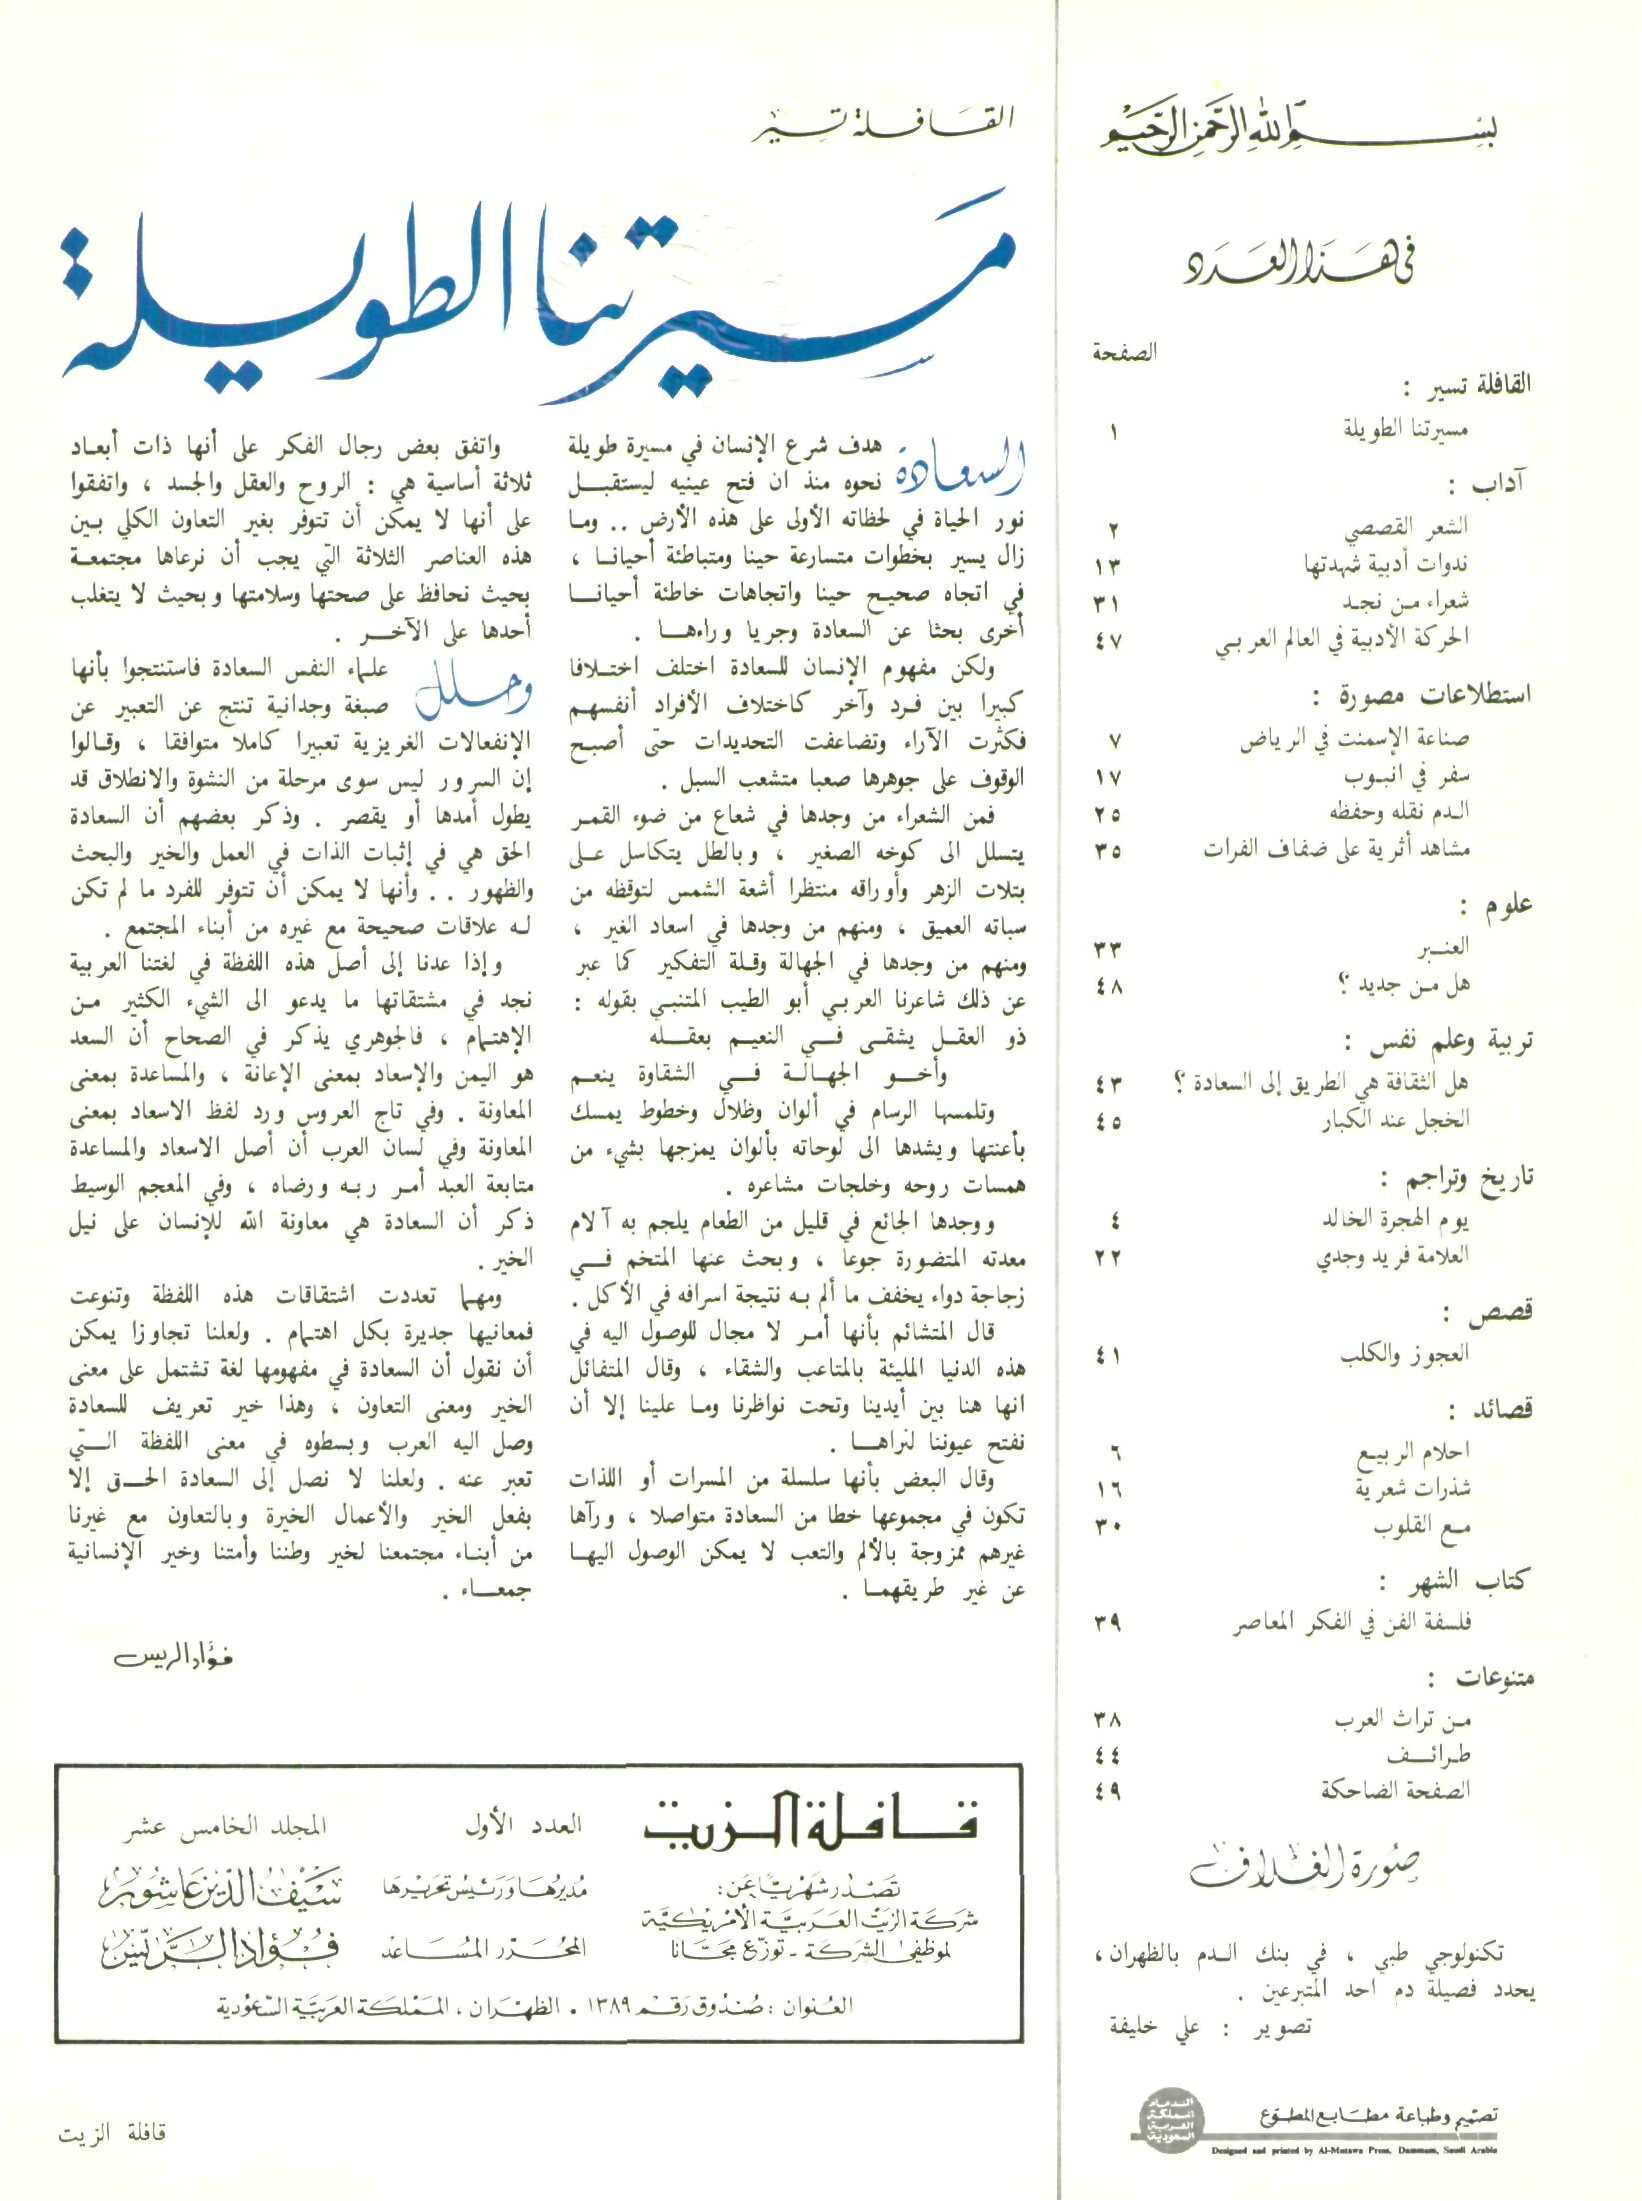 بسم الله الرحمن الرحيم
في هذا العدد
الصفحة
القافلة تسير :
مسيرتنا الطويلة ١
آداب :
الشعر القصصي ٢
ندوات أدبية شهدتها ١٣
شعراء من نجد ٣١
الحركة الأدبية في العالم العربي ٤٧
استطلاعات مصورة :
صناعة الإسمنت في الرياض ٧
سفر في انبوب ١٧
الدم نقله وحفظه ٢٥
مشاهد أثرية على ضفاف الفرات ٣٥
علوم :
العنبر ٣٣
هل من جديد ؟ ٤٨
تربية وعلم نفس :
هل الثقافة هي الطريق إلى السعادة ؟ ٤٣
الخجل عند الكبار ٤٥
تاريخ وتراجم :
يوم الهجرة الخالد ٤
العلامة فريد وجدي ٢٢
قصص :
العجوز والكلب ٤١
قصائد :
احلام الربيع ٦
شذرات شعرية ١٦
مع القلوب ٣٠
كتاب الشهر :
فلسفة الفن في الفكر المعاصر ٣٩
متنوعات :
من تراث العرب ٣٨
طرائف ٤٤
الصفحة الضاحكة ٤٩
صورة الغلاف
تكنولوجي طبي ، في بنك الدم بالظهران ،
يحدد فصيلة دم احد المتبرعين .
تصوير : علي خليفة
تصميم وطباعة مطابع المطوع
الدمام
المملكة
العربية
السعودية
Designed and printed by Al-Mutawa Press, Dammam, Saudi Arabia
القافلة تسير
مسيرتنا الطويلة
السعادة هدف شرع الإنسان في مسيرة طويلة
نحوه منذ ان فتح عينيه ليستقبل
نور الحياة في لحظاته الأولى على هذه الأرض .. وما
زال يسير بخطوات متسارعة حينا ومتباطئة أحيانا ،
في اتجاه صحيح حينا واتجاهات خاطئة أحيانا
أخرى بحثا عن السعادة وجريا وراءها .
ولكن مفهوم الإنسان للسعادة اختلف اختلافا
كبيرا بين فرد وآخر كاختلاف الأفراد أنفسهم
فكثرت الآراء وتضاعفت التحديدات حتى أصبح
الوقوف على جوهرها صعبا متشعب السبل .
فمن الشعراء من وجدها في شعاع من ضوء القمر
يتسلل الى كوخه الصغير ، وبالطل يتكاسل على
بتلات الزهر وأوراقه منتظرا أشعة الشمس لتوقظه من
سباته العميق ، ومنهم من وجدها في اسعاد الغير ،
ومنهم من وجدها في الجهالة وقلة التفكير كما عبر
عن ذلك شاعرنا العربي أبو الطيب المتنبي بقوله :
ذو العقل يشقى في النعيم بعقله
وأخو الجهالة في الشقاوة ينعم
وتلمسها الرسام في ألوان وظلال وخطوط يمسك
بأعنتها ويشدها الى لوحاته بألوان يمزجها بشيء من
همسات روحه وخلجات مشاعره .
ووجدها الجائع في قليل من الطعام يلجم به آلام
معدته المتضورة جوعا ، وبحث عنها المتخم في
زجاجة دواء يخفف ما ألم به نتيجة اسرافه في الأكل .
قال المتشائم بأنها أمر لا مجال للوصول اليه في
هذه الدنيا المليئة بالمتاعب والشقاء ، وقال المتفائل
انها هنا بين أيدينا وتحت نواظرنا وما علينا إلا أن
نفتح عيوننا لنراها .
وقال البعض بأنها سلسلة من المسرات أو اللذات
تكون في مجموعها خطا من السعادة متواصلا ، ورآها
غيرهم ممزوجة بالألم والتعب لا يمكن الوصول اليها
عن غير طريقهما .
واتفق بعض رجال الفكر على أنها ذات أبعاد
ثلاثة أساسية هي : الروح والعقل والجسد ، واتفقوا
على أنها لا يمكن أن تتوفر بغير التعاون الكلي بين
هذه العناصر الثلاثة التي يجب أن نرعاها مجتمعة
بحيث نحافظ على صحتها وسلامتها وبحيث لا يتغلب
أحدها على الآخر .
وحلل علماء النفس السعادة فاستنتجوا بأنها
صبغة وجدانية تنتج عن التعبير عن
الإنفعالات الغريزية تعبيرا كاملا متوافقا ، وقالوا
إن السرور ليس سوى مرحلة من النشوة والانطلاق قد
يطول أمدها أو يقصر . وذكر بعضهم أن السعادة
الحق هي في إثبات الذات في العمل والخير والبحث
والظهور .. وأنها لا يمكن أن تتوفر للفرد ما لم تكن
له علاقات صحيحة مع غيره من أبناء المجتمع .
وإذا عدنا إلى أصل هذه اللفظة في لغتنا العربية
نجد في مشتقاتها ما يدعو الى الشيء الكثير من
الإهتمام ، فالجوهري يذكر في الصحاح أن السعد
هو اليمن والإسعاد بمعنى الإعانة ، والمساعدة بمعنى
المعاونة . وفي تاج العروس ورد لفظ الاسعاد بمعنى
المعاونة وفي لسان العرب أن أصل الاسعاد والمساعدة
متابعة العبد أمر ربه ورضاه ، وفي المعجم الوسيط
ذكر أن السعادة هي معاونة الله للإنسان على نيل
الخير .
ومهما تعددت اشتقاقات هذه اللفظة وتنوعت
فمعانيها جديرة بكل اهتمام . ولعلنا تجاوزا يمكن
أن نقول أن السعادة في مفهومها لغة تشتمل على معنى
الخير ومعنى التعاون ، وهذا خير تعريف للسعادة
وصل اليه العرب وبسطوه في معنى اللفظة التي
تعبر عنه . ولعلنا لا نصل إلى السعادة الحق إلا
بفعل الخير والأعمال الخيرة وبالتعاون مع غيرنا
من أبناء مجتمعنا لخير وطننا وأمتنا وخير الإنسانية
جمعاء .
فؤاد الريس
قافلة الزيت العدد الأول المجلد الخامس عشر
تصدر شهريا عن:
شركة الزيت العربية الأمريكية
لموظفي الشركة - توزع مجانا
مديرها ورئيس تحريرها سيف الدين عاشور
المحرر المساعد فؤاد الريس
العنوان : صندوق رقم ١٣٨٩ . الظهران ، المملكة العربية السعودية
قافلة الزيت